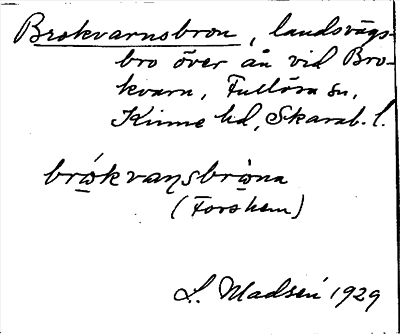 Brokvarnsbron, landsvägs-
bro över ån vid Bro-
kvarn, Fullösa sn,
Kinne hd, Skarab. l.
brώkvaṇsbrὼna
(Forshem)
L. Madsén 1929